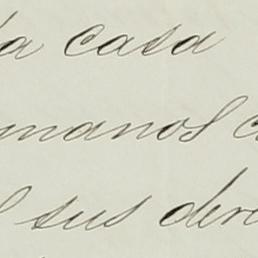 la casa
manos c
sus dere